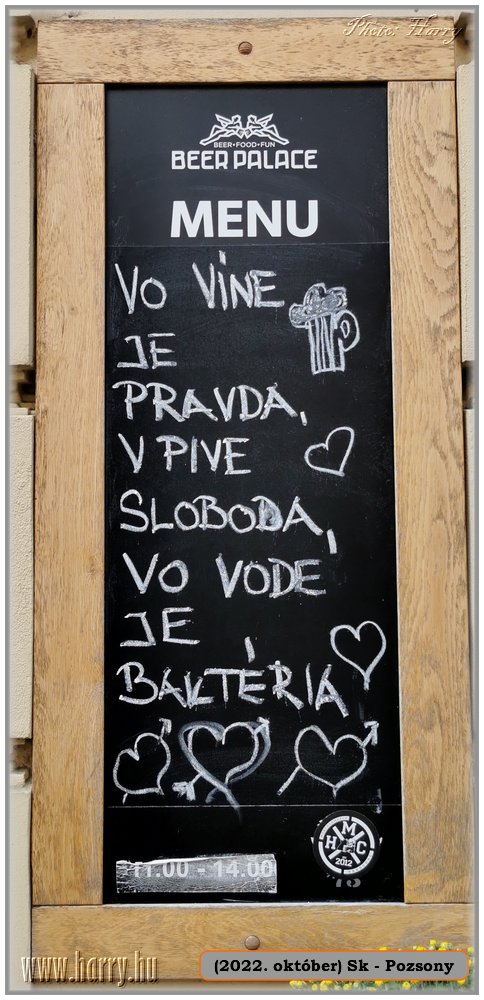 Photo: Harry
BEER•FOOD•FUN
BEER PALACE
MENU
VO VÍNE
JE
PRAVDA,
V PIVE
SLOBODA,
VO VODE
JE
BAKTÉRIA
M
H C
2012
11.00 - 14.00
www.harry.hu
(2022. október) Sk - Pozsony